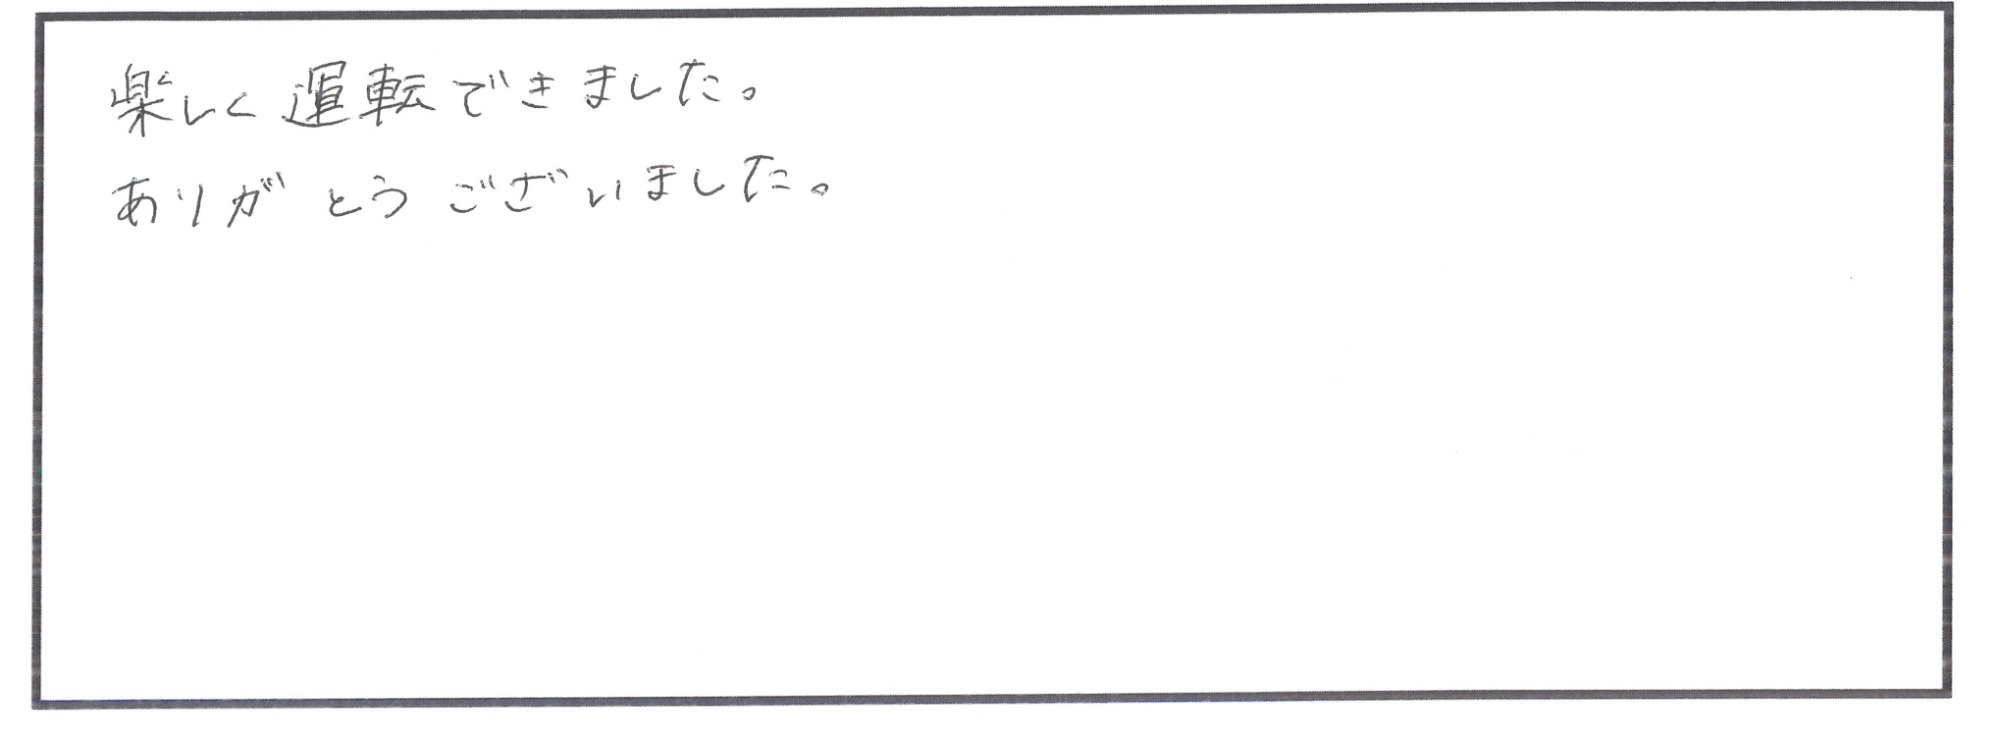 楽しく運転できました。
ありがとうございました。